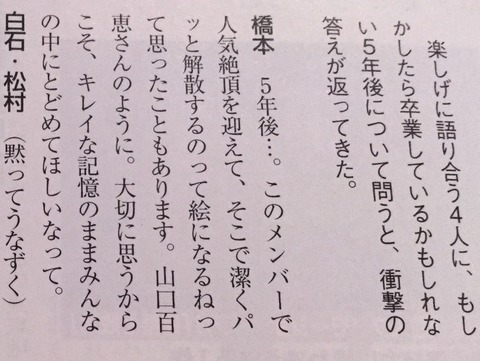 楽しげに語り合う4人に、もし
かしたら卒業しているかもしれな
い5年後について問うと、衝撃の
答えが返ってきた。
橋本　5年後…。このメンバーで
人気絶頂を迎えて、そこで潔くパ
ッと解散するのって絵になるねっ
て思ったこともあります。山口百
恵さんのように。大切に思うから
こそ、キレイな記憶のままみんな
の中にとどめてほしいなって。
白石・松村　（黙ってうなずく）